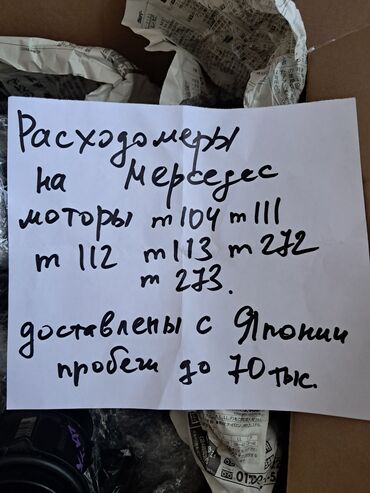 Расходомеры
на Мерседес
моторы m104 m111
m 112 m113 m 272
m 273.
доставлены с Японии
пробеги до 70 тыс.